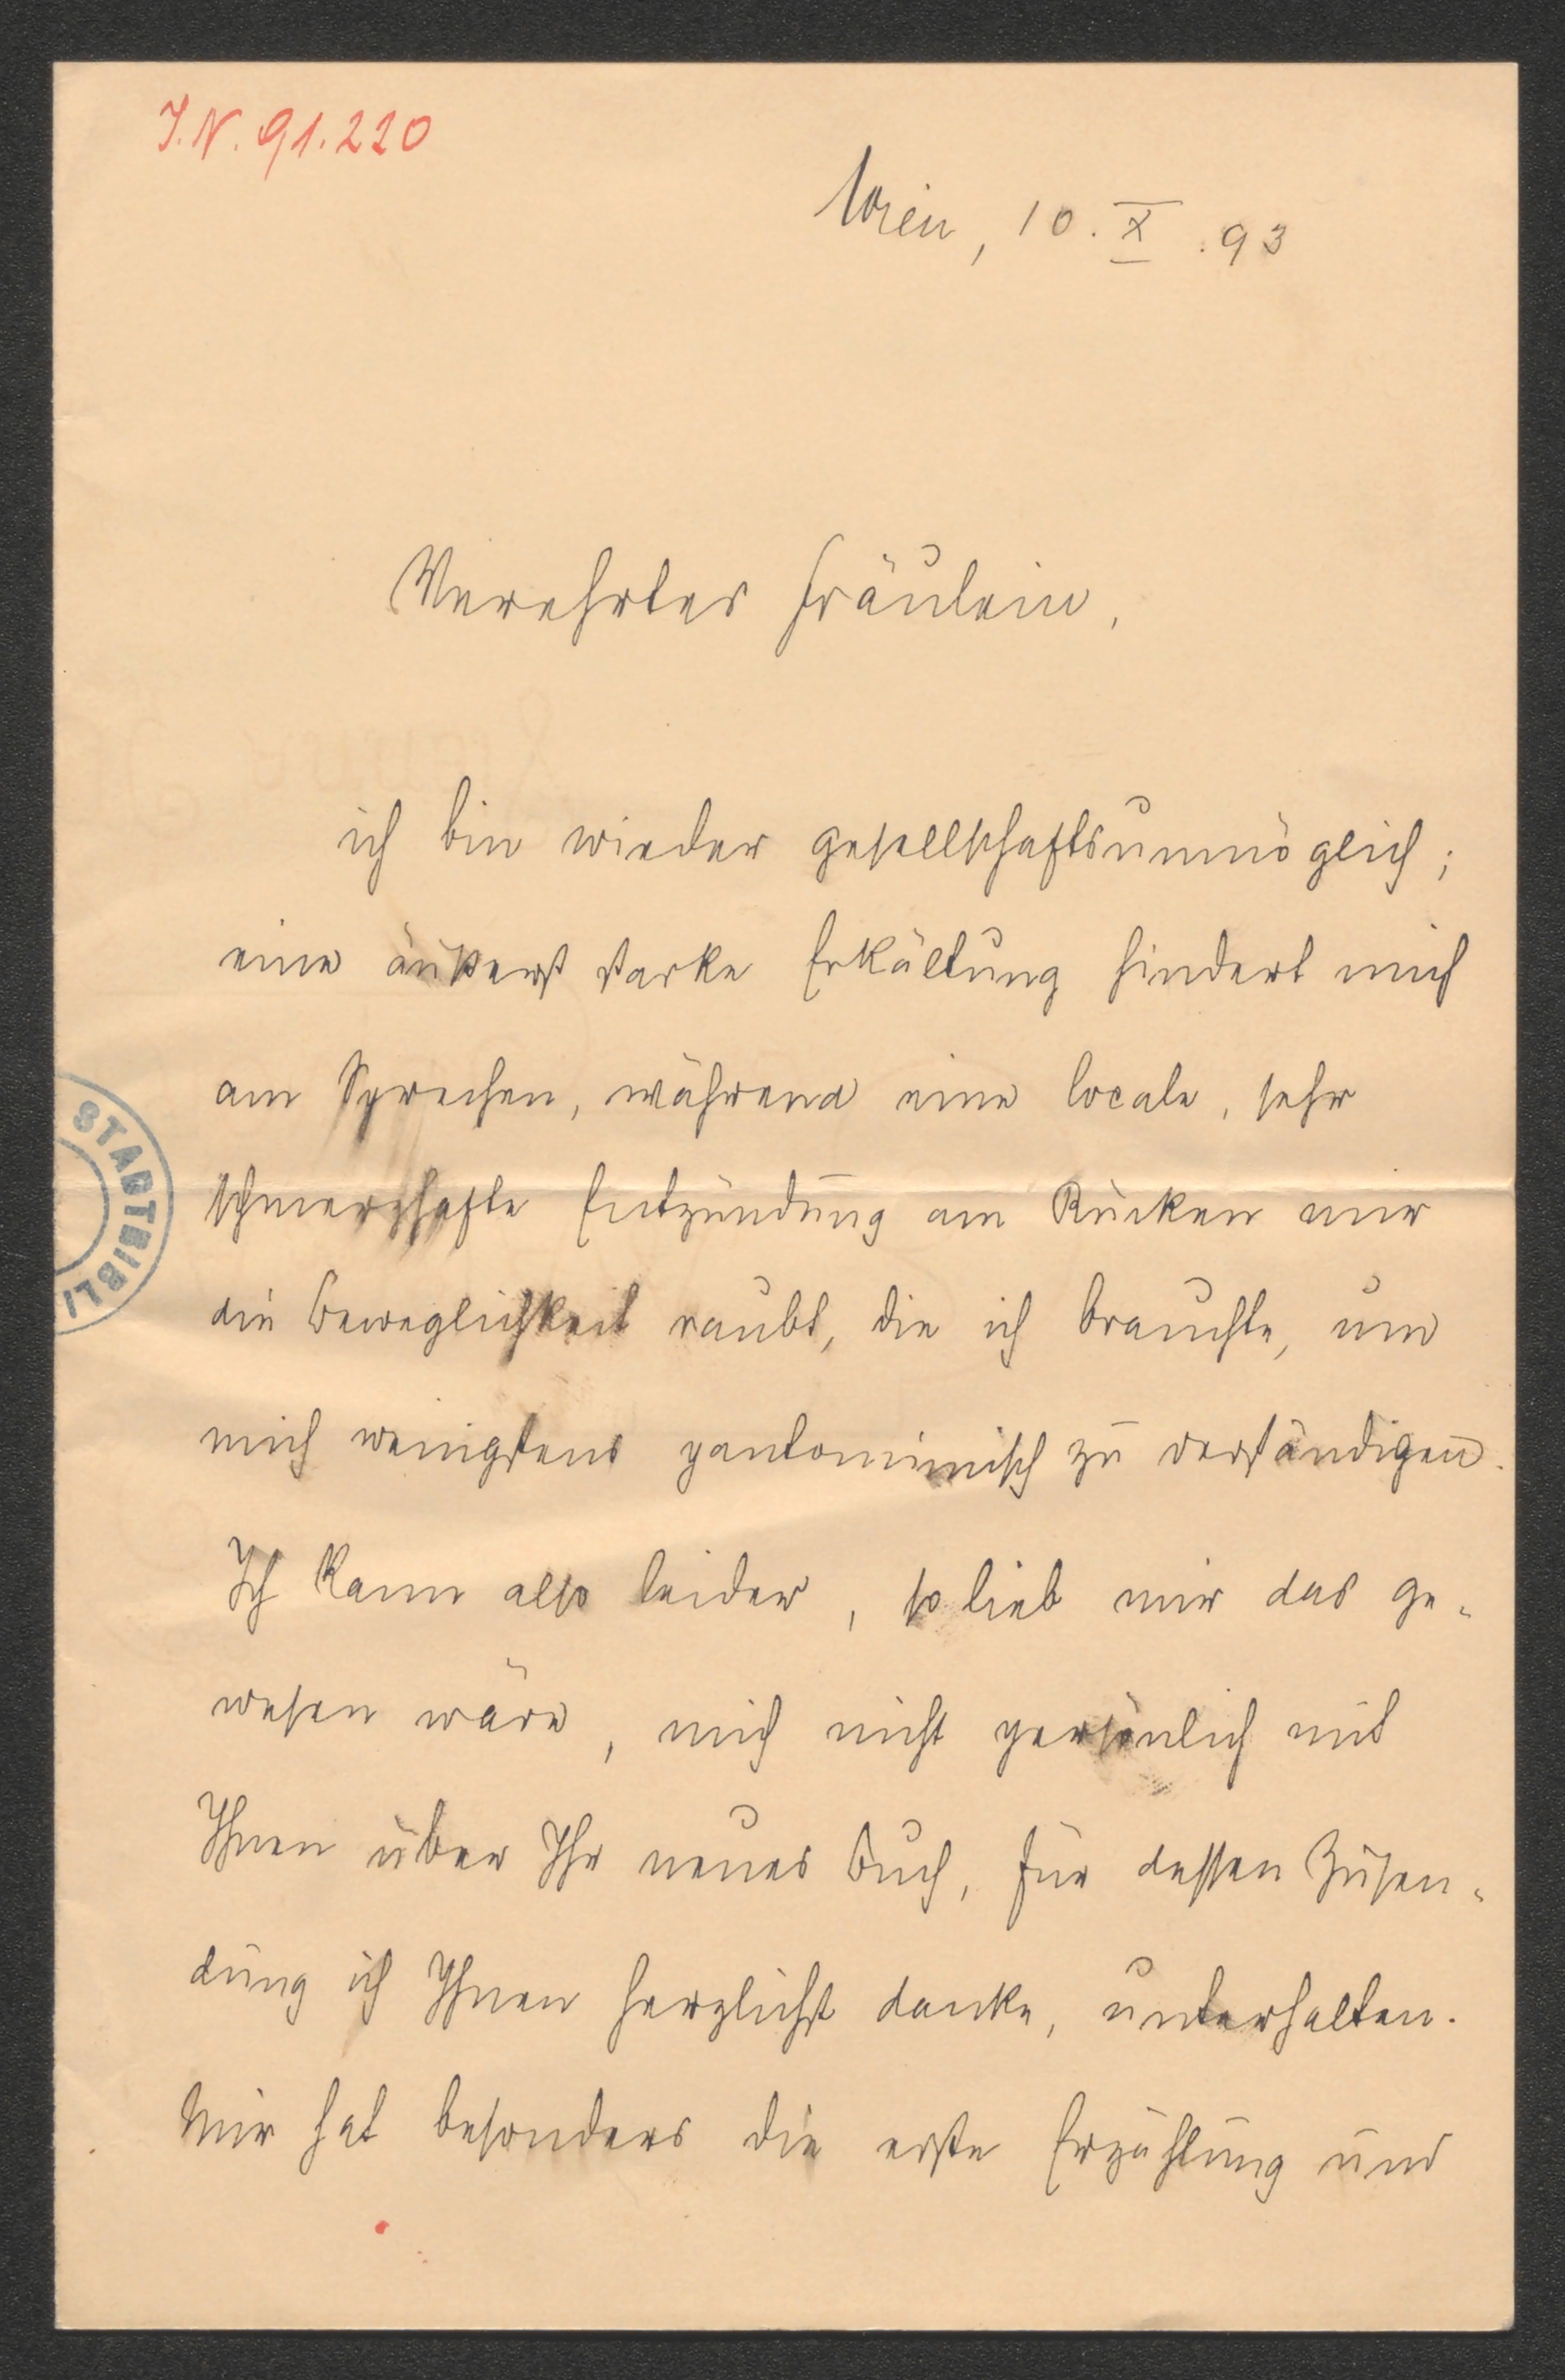 I.N. 91.220
Wien, 10. X. 93
Verehrtes Fräulein,
ich bin wieder gesellschaftsunmöglich;
eine äußerst starke Erkältung hindert mich
am Sprechen, während eine locale, sehr
schmerzhafte Entzündung am Rücken mir
die Beweglichkeit raubt, die ich brauchte, um
mich wenigstens pantomimisch zu verständigen.
Ich kann also leider, so lieb mir das ge-
wesen wäre, mich nicht persönlich mit
Ihnen über Ihr neues Buch, für dessen Zusen-
dung ich Ihnen herzlichst danke, unterhalten.
Mir hat besonders die erste Erzählung und
STADTBIBLI